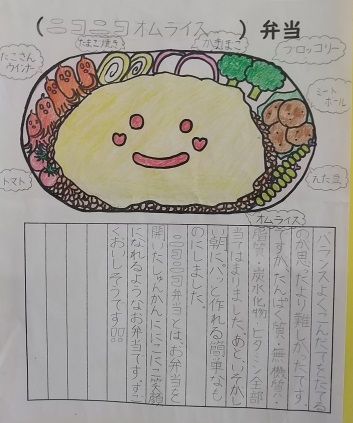 (ニコニコオムライス) 弁当
たこさんウインナー
たまご焼き
かまぼこ
ブロッコリー
ミートボール
えだ豆
トマト
オムライス
バランスよくこんだてをたてる
のが思ったより難しかったです。
ですが、たんぱく質・無機質・
脂質・炭水化物・ビタミン全部
当てはまりました。あと、いそがし
い朝にパッと作れる簡単なも
のにしました。
ニコニコ弁当とは、お弁当を
開いたしゅんかんににこにこ笑顔
になれるようなお弁当です。すご
くおいしそうです!!